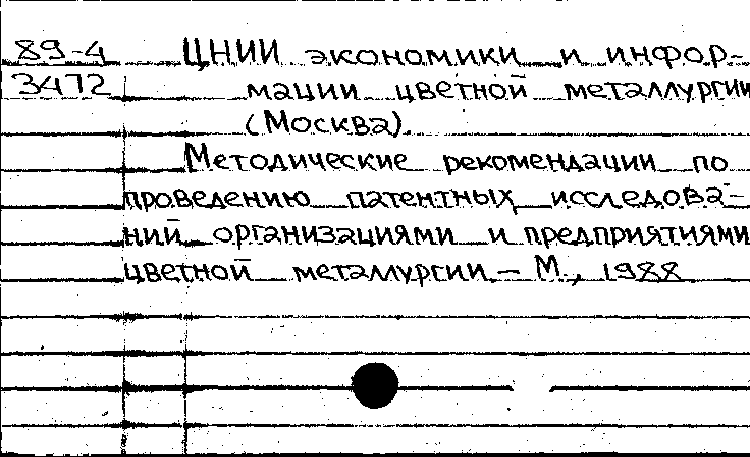 89-4 ЦНИИ экономики и инфор-
3472 мации цветной металлургии
(Москва).
Методические рекомендации по
проведению патентных исследова-
ний организациями и предприятиями
цветной металлургии. – М., 1988